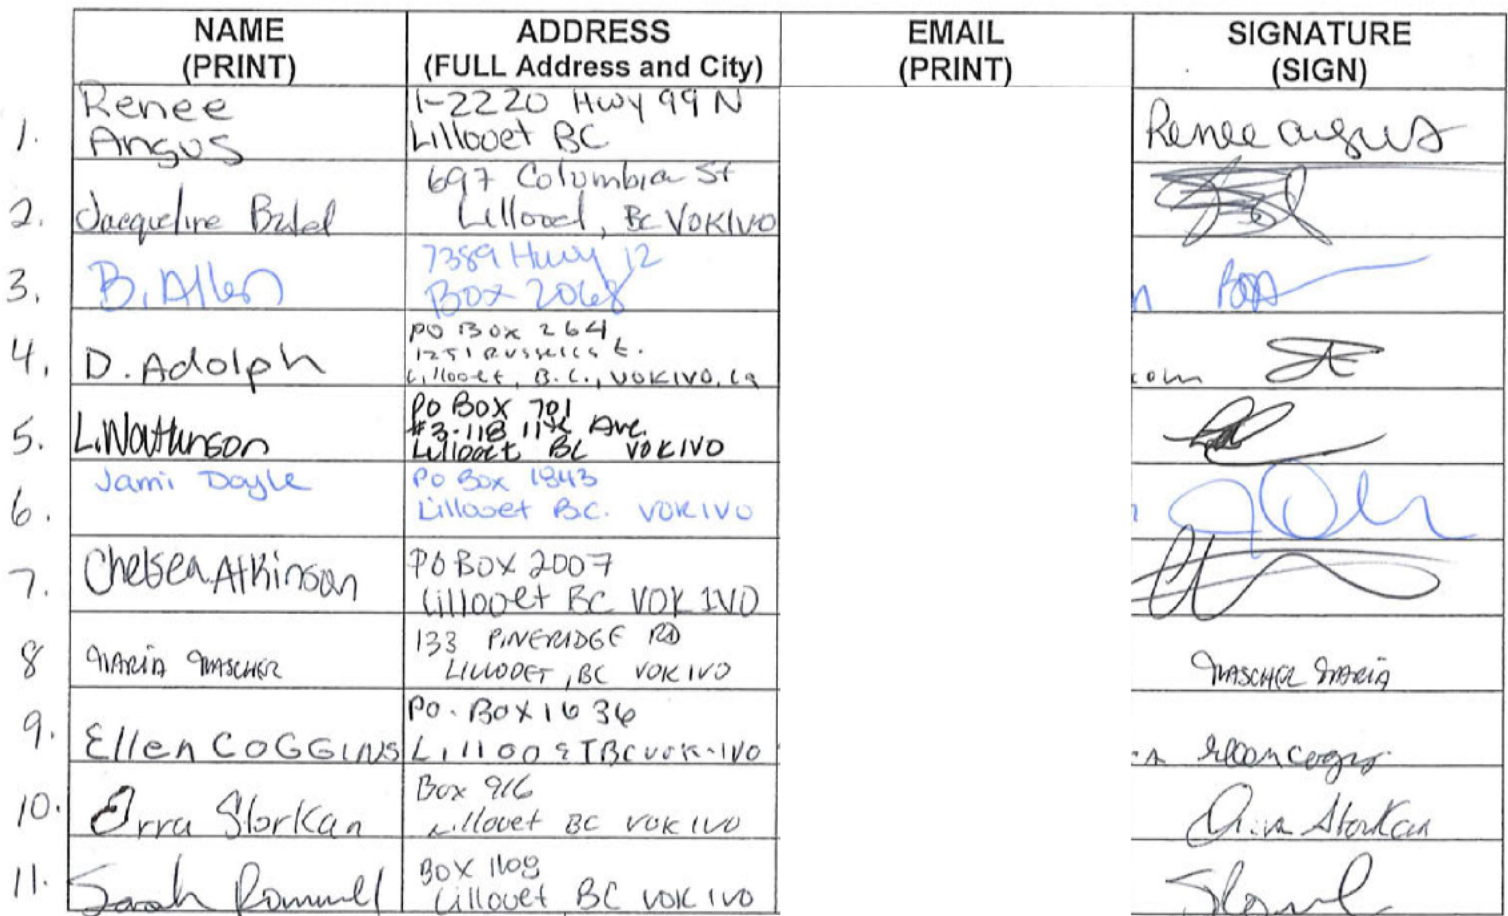 NAME (PRINT) ADDRESS (FULL Address and City) EMAIL (PRINT) SIGNATURE (SIGN)
1. Renee Angus 1-2220 Hwy 99 N Lillooet BC Renee angus
2. Jacqueline 697 Columbia St Lillooet, BC V0K1V0
3. B. Allen 7389 Hwy 12 Box 2068
4. D. Adolph PO Box 264, 1251 Lillooet, B.C., V0K1V0, Ca com
5. L. Watkinson PO BOX 701 #3-118 11th Ave. Lillooet BC V0K1V0
6. Jami Doyle PO Box 1843 Lillooet B.C. V0K1V0
7. Chelsea Atkinson PO BOX 2007 Lillooet BC V0K 1V0
8 MARIA MASCHER 133 PINERIDGE RD LILLOOET, BC V0K1V0 MASCHER MARIA
9. Ellen COGGINS PO. BOX 1636 LillooET BC V0K-1V0 Ellen
10. Storkan Box 916 Lillooet BC V0K1V0 Storkan
11. Sarah Box 1109 Lillooet BC V0K 1V0